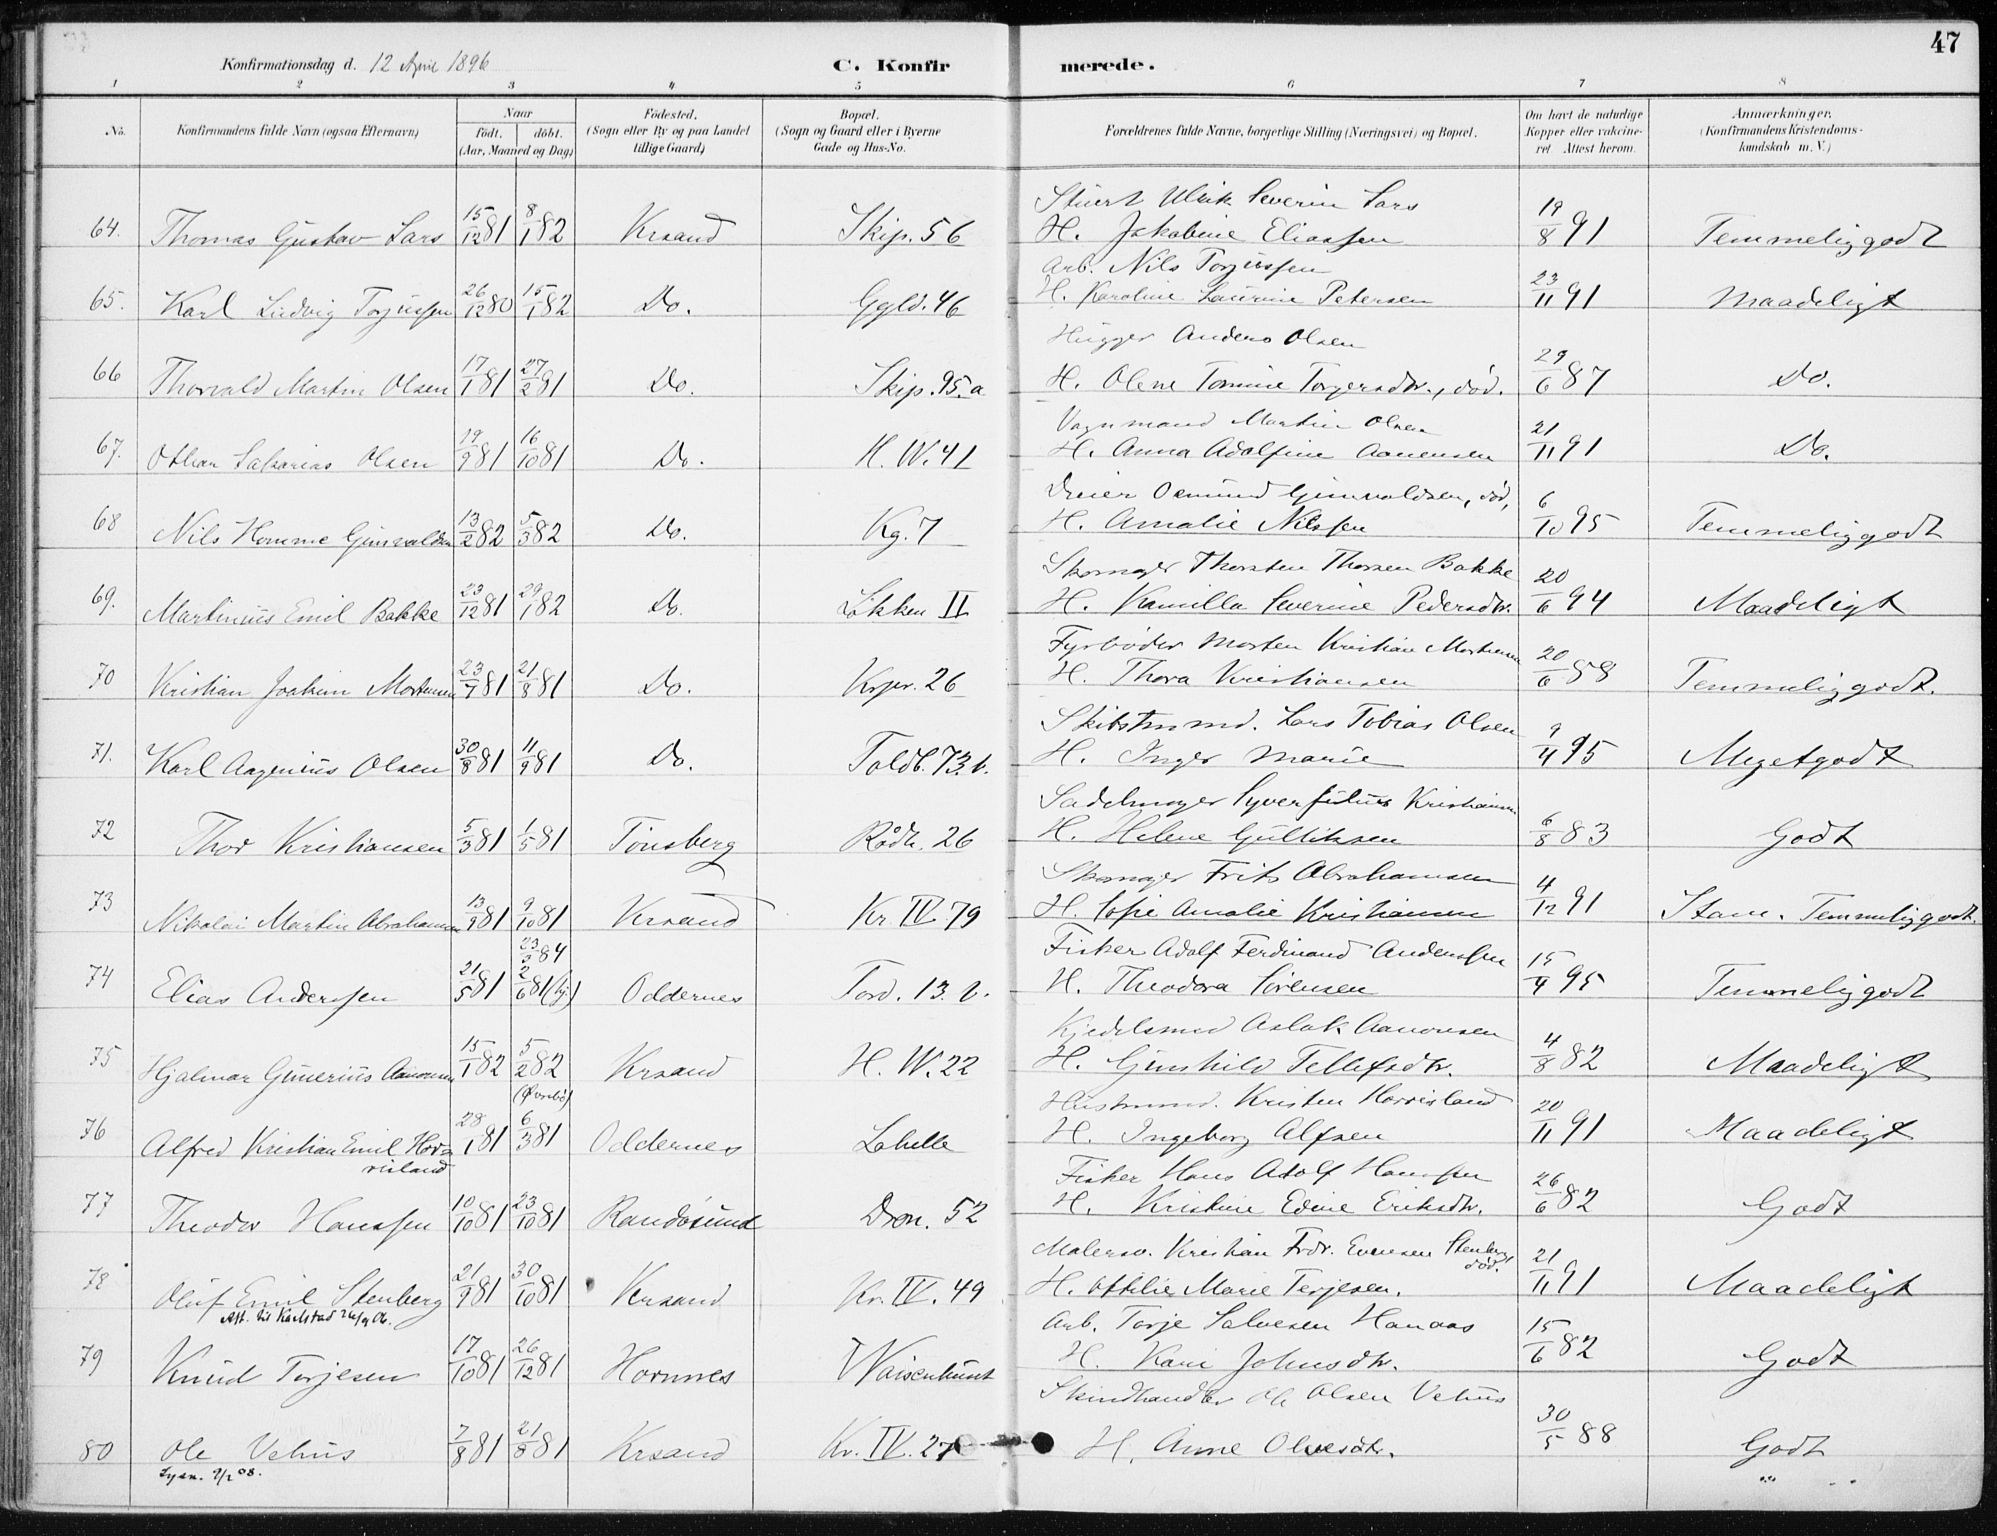 47
Konfirmationsdag d. 12 April 1896
C. Konfirmerede.
1 2 3 4 5 6 7 8
No. Konfirmandens fulde Navn (ogsaa Efternavn) Naar født. døbt. (Aar, Maaned og Dag) Fødested. (Sogn eller By og paa Landet tillige Gaard) Bopæl. (Sogn og Gaard eller i Byerne Gade og Hus-No. Forældrenes fulde Navne, borgerlige Stilling (Næringsvei) og Bopæl. Om havt de naturlige Kopper eller vakcineret. Attest herom. Anmærkninger. (Konfirmandens Kristendomskundskab m. V.)
Stuert Ulrik Severin Lars
64. Thomas Gustav Lars 15/12 81 8/1 82 Krsand Skip. 56 H. Jakobine Eliassen 19/8 91 Temmelig godt
Arb. Nils Torjussen
65. Karl Ludvig Torjussen 26/12 80 15/1 82 Do. Ggld. 46 H. Karoline Laurine Petersen 23/11 91 Maadeligt
Hugger Anders Olsen
66 Thorvald Martin Olsen 17/1 81 27/2 81 Do. Skip. 95.a H. Olene Tomine Torgersdtr., død. 29/6 87 Do.
Vognmand Martin Olsen
67. Othar Sakarias Olsen 19/9 81 16/10 81 Do. H. W. 41 H. Anna Adolfine Aanensen 21/11 91 Do.
Dreier Osmund Gunvaldsen, død,
68 Nils Homme Gunvaldsen 13/2 82 5/3 82 Do. Kg. 7 H. Amalie Nilssen 6/10 95 Temmelig godt
Skomager Thorsten Thorsen Bakke
69. Martinius Emil Bakke 23/12 81 29/1 82 Do. Løkken II H. Kamilla Severine Pedersdtr. 20/6 94 Maadeligt
Fyrbøder Morten Kristian Mortensen
70 Kristian Joakim Mortensen 23/7 81 21/8 81 Do. Krpr. 26 H. Thora Kristiansen 20/6 88 Temmelig godt.
Skibstmmd. Lars Tobias Olsen
71. Karl Aagenius Olsen 30/8 81 11/9 81 Do. Toldb. 73.b. H. Inger Marie 9/4 95 Megetgodt
Sadelmager Syver Julius Kristiansen
72 Thor Kristiansen 5/3 81 1/5 81 Tønsberg Rådh. 26 H. Helene Gulliksen 6/8 83 Godt
Skomager Frits Abrahamsen
73 Nikolai Martin Abrahamsen 13/9 81 9/10 81 Krsand Kr. IV. 79 H. Sofie Amalie Kristiansen 4/12 91 Stam. Temmelig godt.
23/3 84
Fisker Adolf Ferdinand Anderssen
74 Elias Anderssen 21/5 81 2/6 81 (hj.) Oddernes Tord. 13.b. H. Theodora Sørensen 15/4 95 Temmelig godt
Kjedelsmed Aslak Aanonsen
75 Hjalmar Gunerius Aanonsen 15/1 82 5/2 82 Krsand H. W. 22 H. Gunhild Tellefsdtr. 4/8 82 Maadeligt
(Øvrebø)
Hustmmd. Kristen Horrisland
76 Alfred Kristian Emil Horrisland 28/1 81 6/3 81 Oddernes Lahelle H. Ingeborg Alfsen 20/11 91 Maadeligt
Fisker Hans Adolf Hanssen
77 Theodor Hanssen 10/10 81 23/10 81 Randøsund Dron. 52 H. Kristine Edine Eriksdtr. 26/6 82 Godt
Malersv. Kristian Frdr. Evensen Stenberg, død.
78 Oluf Emil Stenberg 21/9 81 30/10 81 Krsand Kr. IV. 49 H. Otilie Marie Terjesen. 21/11 91 Maadeligt
Att. til Karlstad 26/9 06.
Arb. Torje Salvesen Hanaas
79 Knud Torjesen 17/10 81 26/12 81 Hornnes Waisenhuset H. Kari Johnsdtr. 15/6 82 Godt
Skindhandler Ole Olsen Vehus
80 Ole Vehus 7/8 81 21/8 81 Krsand Kr. IV. 27 H. Anne Olvesdtr. 30/5 88 Godt
Lysn. 9/2 08.